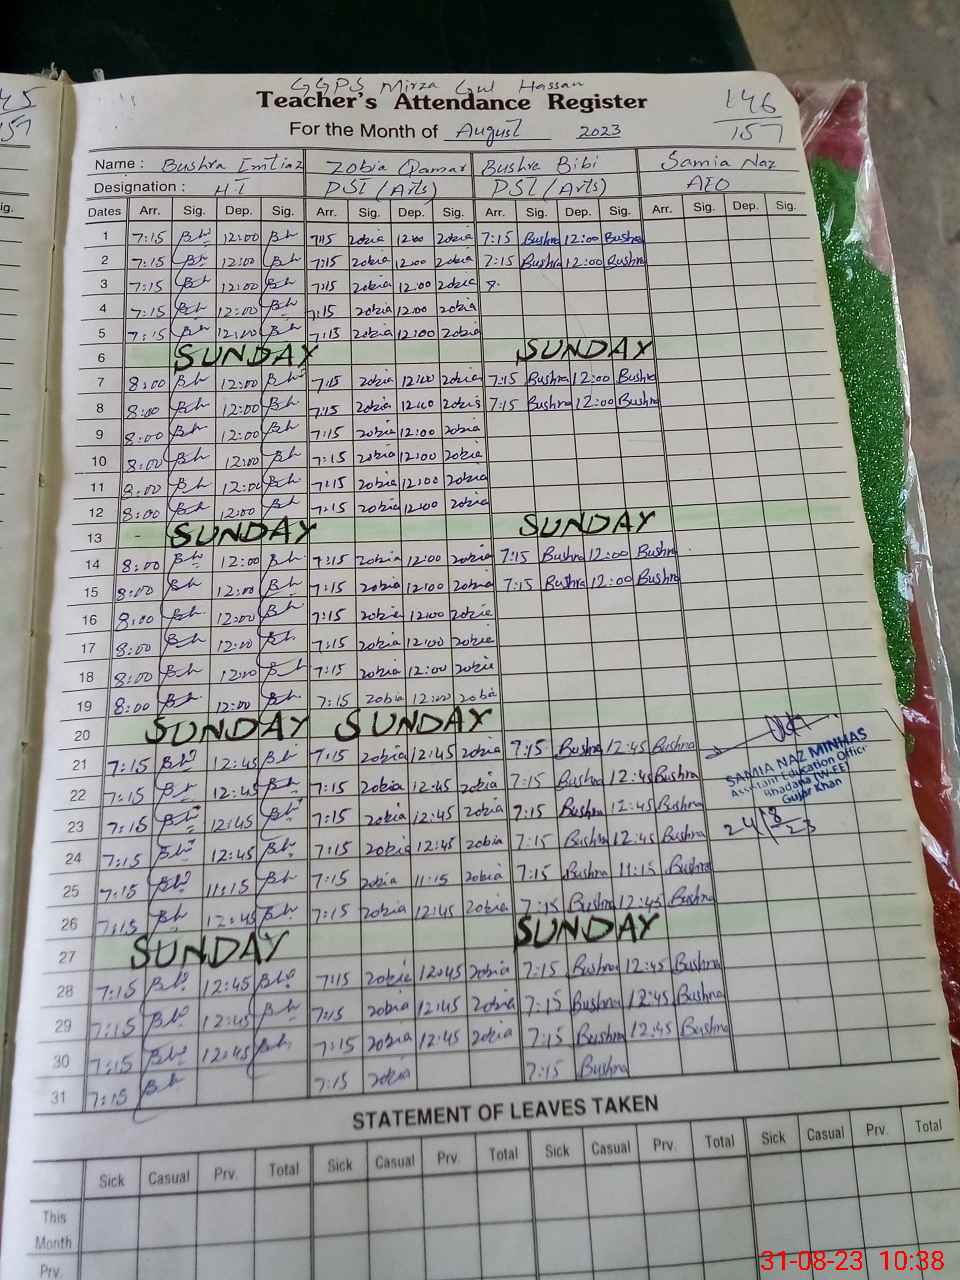 45
157
ig.
GGPS Mirza Gul Hassan
Teacher's Attendance Register
146
157
For the Month of August 2023
Name : Bushra Imtiaz Zobia Qamar Bushra Bibi Samia Naz
Designation : HT PST (Arts) PST (Arts) AEO
Dates Arr. Sig. Dep. Sig. Arr. Sig. Dep. Sig. Arr. Sig. Dep. Sig. Arr. Sig. Dep. Sig.
1 7:15 12:00 7:15 Zobia 12:00 Zobia 7:15 Bushra 12:00 Bushra
2 7:15 12:00 7:15 Zobia 12:00 Zobia 7:15 Bushra 12:00 Bushra
3 7:15 12:00 7:15 Zobia 12:00 Zobia
4 7:15 12:00 7:15 Zobia 12:00 Zobia
5 7:15 12:00 7:15 Zobia 12:00 Zobia
6 SUNDAY SUNDAY
7 8:00 12:00 7:15 Zobia 12:00 Zobia 7:15 Bushra 12:00 Bushra
8 8:00 12:00 7:15 Zobia 12:00 Zobia 7:15 Bushra 12:00 Bushra
9 8:00 12:00 7:15 Zobia 12:00 Zobia
10 8:00 12:00 7:15 Zobia 12:00 Zobia
11 8:00 12:00 7:15 Zobia 12:00 Zobia
12 8:00 12:00 7:15 Zobia 12:00 Zobia
13 - SUNDAY SUNDAY
14 8:00 12:00 7:15 Zobia 12:00 Zobia 7:15 Bushra 12:00 Bushra
15 8:00 12:00 7:15 Zobia 12:00 Zobia 7:15 Bushra 12:00 Bushra
16 8:00 12:00 7:15 Zobia 12:00 Zobia
17 8:00 12:00 7:15 Zobia 12:00 Zobia
18 8:00 12:00 7:15 Zobia 12:00 Zobia
19 8:00 12:00 7:15 Zobia 12:00 Zobia
20 SUNDAY SUNDAY
21 7:15 12:45 7:15 Zobia 12:45 Zobia 7:15 Bushra 12:45 Bushra
SAMIA NAZ MINHAS
Assistant Education Officer
Bhadana (W-EE)
Gujar Khan
22 7:15 12:45 7:15 Zobia 12:45 Zobia 7:15 Bushra 12:45 Bushra
23 7:15 12:45 7:15 Zobia 12:45 Zobia 7:15 Bushra 12:45 Bushra
24/8/23
24 7:15 12:45 7:15 Zobia 12:45 Zobia 7:15 Bushra 12:45 Bushra
25 7:15 11:15 7:15 Zobia 11:15 Zobia 7:15 Bushra 11:15 Bushra
26 7:15 12:45 7:15 Zobia 12:45 Zobia 7:15 Bushra 12:45 Bushra
27 SUNDAY SUNDAY
28 7:15 12:45 7:15 Zobia 12:45 Zobia 7:15 Bushra 12:45 Bushra
29 7:15 12:45 7:15 Zobia 12:45 Zobia 7:15 Bushra 12:45 Bushra
30 7:15 12:45 7:15 Zobia 12:45 Zobia 7:15 Bushra 12:45 Bushra
31 7:15 7:15 Zobia 7:15 Bushra
STATEMENT OF LEAVES TAKEN
Sick Casual Prv. Total Sick Casual Prv. Total Sick Casual Prv. Total Sick Casual Prv. Total
This
Month
Prv.
31-08-23 10:38